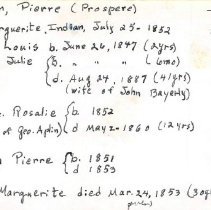 , Pierre (Prospere)
rguerite, Indian, July 25 - 1852
Louis b. June 26, 1847 (2yrs)
Julie b. " " (6mo)
d. Aug 24, 1887 (41yrs)
(wife of John Bayerly)
. Rosalie b. 1852
of Geo. Aplin) d May 2 - 1860 (12yrs)
Pierre b. 1851
d 1853
Marguerite died Mar. 24, 1853 (30